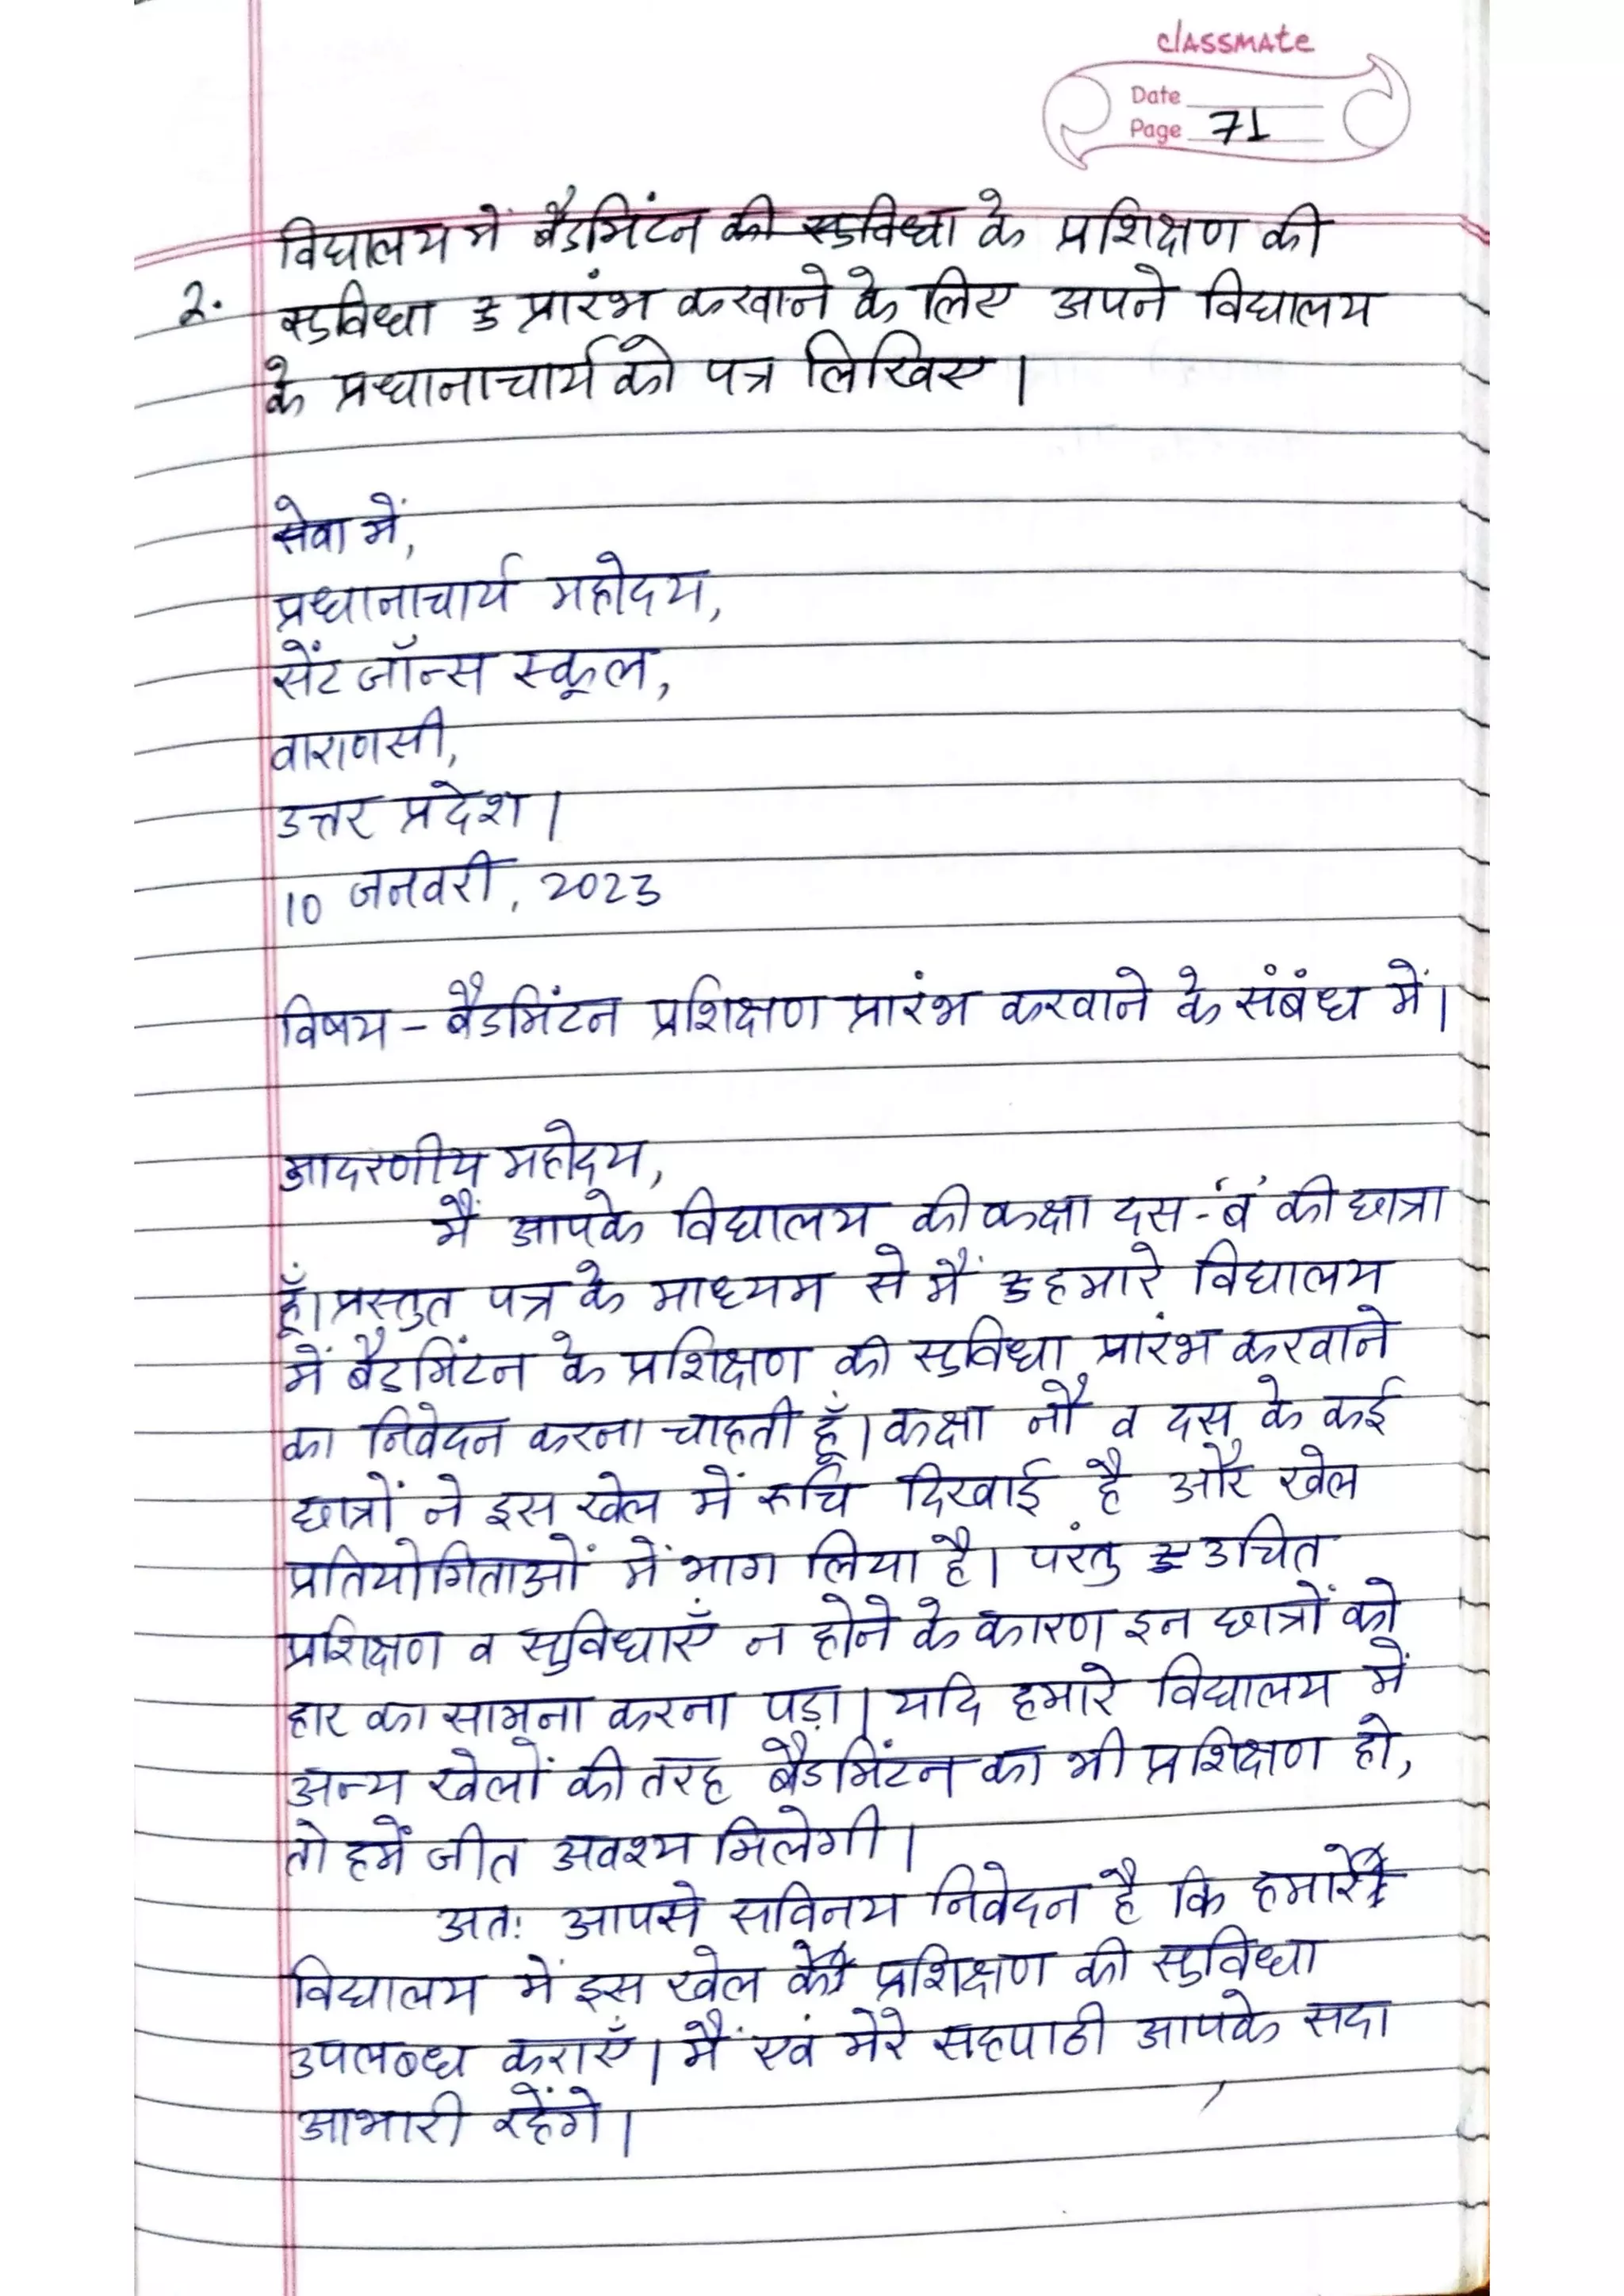 classmate
Date
Page 71
विद्यालय में बैडमिंटन की सुविधा के प्रशिक्षण की
2. सुविधा प्रारंभ करवाने के लिए अपने विद्यालय
के प्रधानाचार्य को पत्र लिखिए।
सेवा में,
प्रधानाचार्य महोदय,
सेंट जॉन्स स्कूल,
वाराणसी,
उत्तर प्रदेश।
10 जनवरी, 2023
विषय - बैडमिंटन प्रशिक्षण प्रारंभ करवाने के संबंध में।
आदरणीय महोदय,
मैं आपके विद्यालय की कक्षा दस-'ब' की छात्रा
हूँ। प्रस्तुत पत्र के माध्यम से मैं हमारे विद्यालय
में बैडमिंटन के प्रशिक्षण की सुविधा प्रारंभ करवाने
का निवेदन करना चाहती हूँ। कक्षा नौ व दस के कई
छात्रों ने इस खेल में रूचि दिखाई है और खेल
प्रतियोगिताओं में भाग लिया है। परंतु उचित
प्रशिक्षण व सुविधाएँ न होने के कारण इन छात्रों को
हार का सामना करना पड़ा। यदि हमारे विद्यालय में
अन्य खेलों की तरह बैडमिंटन का भी प्रशिक्षण हो,
तो हमें जीत अवश्य मिलेगी।
अतः आपसे सविनय निवेदन है कि हमारे
विद्यालय में इस खेल के प्रशिक्षण की सुविधा
उपलब्ध कराएँ। मैं एवं मेरे सहपाठी आपके सदा
आभारी रहेंगे।